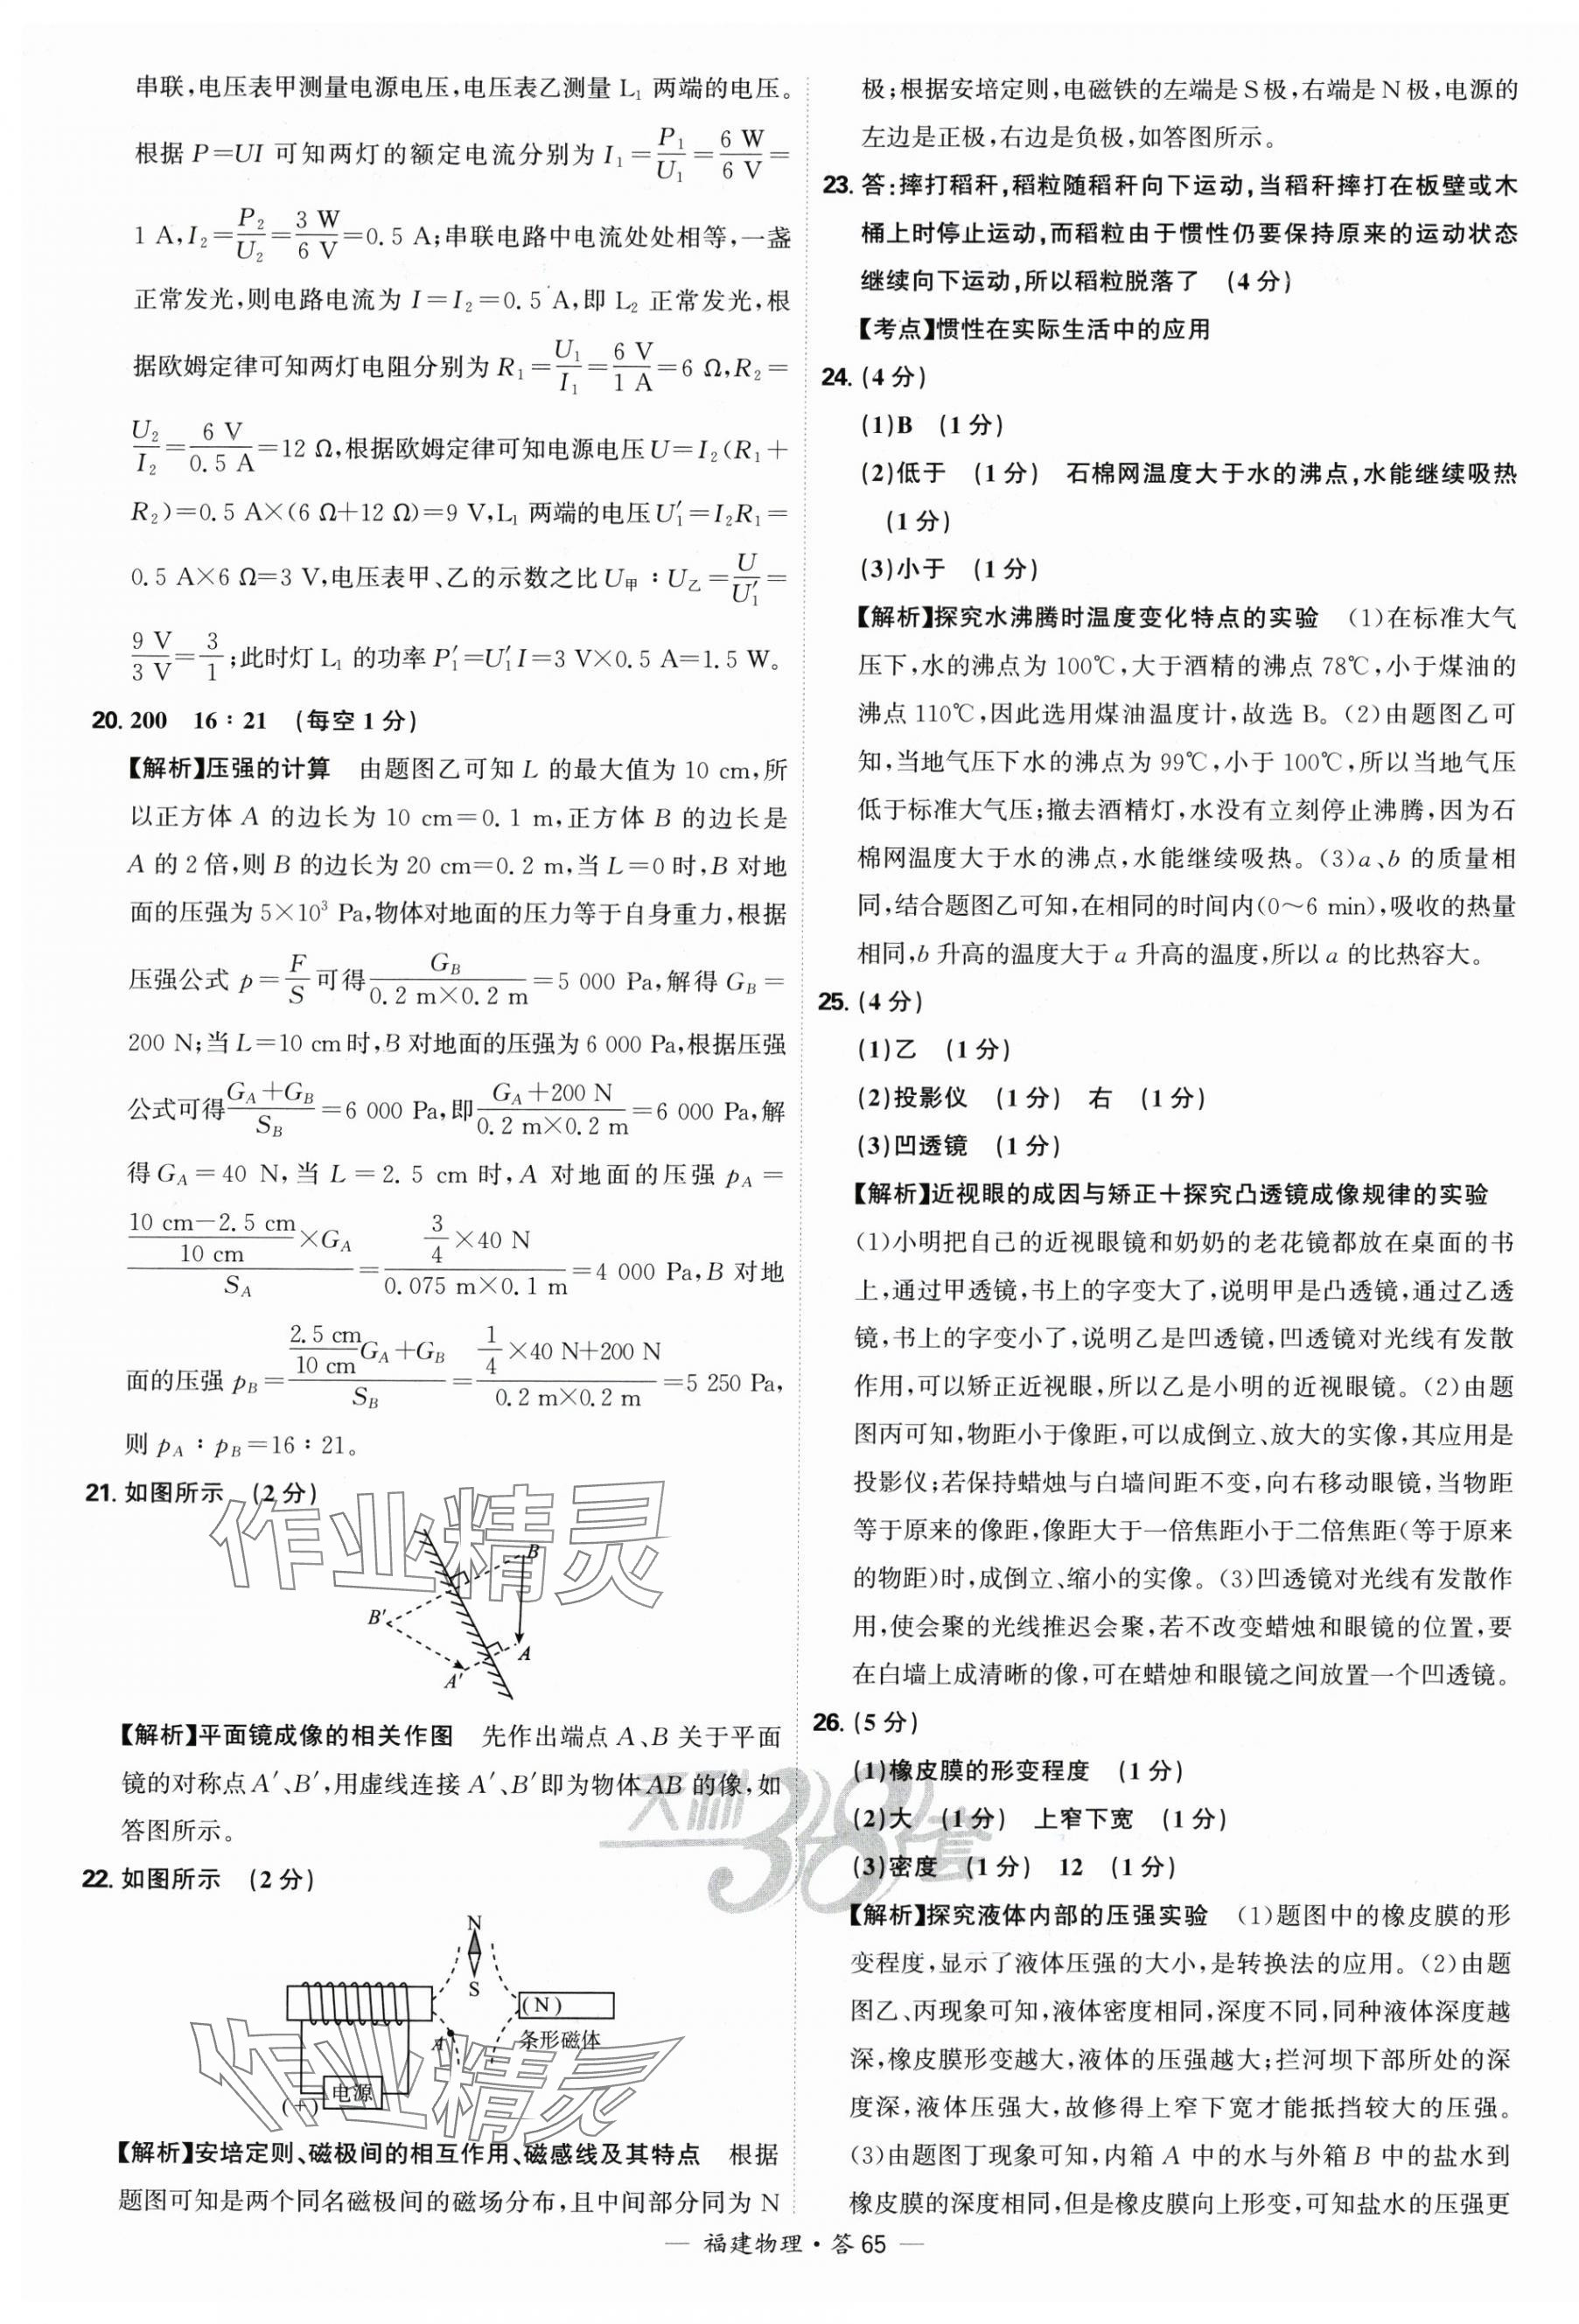 串联,电压表甲测量电源电压,电压表乙测量 L₁ 两端的电压。
根据 P=UI 可知两灯的额定电流分别为 I₁=P₁/U₁=6 W/6 V=
1 A,I₂=P₂/U₂=3 W/6 V=0.5 A;串联电路中电流处处相等,一盏
正常发光,则电路电流为 I=I₂=0.5 A,即 L₂ 正常发光,根
据欧姆定律可知两灯电阻分别为 R₁=U₁/I₁=6 V/1 A=6 Ω,R₂=
U₂/I₂=6 V/0.5 A=12 Ω,根据欧姆定律可知电源电压 U=I₂(R₁+
R₂)=0.5 A×(6 Ω+12 Ω)=9 V,L₁ 两端的电压 U₁′=I₂R₁=
0.5 A×6 Ω=3 V,电压表甲、乙的示数之比 U甲∶U乙=U/U₁′=
9 V/3 V=3/1;此时灯 L₁ 的功率 P₁′=U₁′I=3 V×0.5 A=1.5 W。
20. 200 16∶21 (每空 1 分)
【解析】压强的计算 由题图乙可知 L 的最大值为 10 cm,所
以正方体 A 的边长为 10 cm=0.1 m,正方体 B 的边长是
A 的 2 倍,则 B 的边长为 20 cm=0.2 m,当 L=0 时,B 对地
面的压强为 5×10³ Pa,物体对地面的压力等于自身重力,根据
压强公式 p=F/S 可得 G_B/(0.2 m×0.2 m)=5 000 Pa,解得 G_B=
200 N;当 L=10 cm 时,B 对地面的压强为 6 000 Pa,根据压强
公式可得 (G_A+G_B)/S_B=6 000 Pa,即 (G_A+200 N)/(0.2 m×0.2 m)=6 000 Pa,解
得 G_A=40 N,当 L=2.5 cm 时,A 对地面的压强 p_A=
((10 cm-2.5 cm)/10 cm×G_A)/S_A=(3/4×40 N)/(0.075 m×0.1 m)=4 000 Pa,B 对地
面的压强 p_B=(2.5 cm/10 cm G_A+G_B)/S_B=(1/4×40 N+200 N)/(0.2 m×0.2 m)=5 250 Pa,
则 p_A∶p_B=16∶21。
21. 如图所示 (2 分)
B
B′
A
A′
【解析】平面镜成像的相关作图 先作出端点 A、B 关于平面
镜的对称点 A′、B′,用虚线连接 A′、B′即为物体 AB 的像,如
答图所示。
22. 如图所示 (2 分)
N
S
(N)
A
条形磁体
电源
(+)
【解析】安培定则、磁极间的相互作用、磁感线及其特点 根据
题图可知是两个同名磁极间的磁场分布,且中间部分同为 N
极;根据安培定则,电磁铁的左端是 S 极,右端是 N 极,电源的
左边是正极,右边是负极,如答图所示。
23. 答:摔打稻秆,稻粒随稻秆向下运动,当稻秆摔打在板壁或木
桶上时停止运动,而稻粒由于惯性仍要保持原来的运动状态
继续向下运动,所以稻粒脱落了 (4 分)
【考点】惯性在实际生活中的应用
24. (4 分)
(1)B (1 分)
(2)低于 (1 分) 石棉网温度大于水的沸点,水能继续吸热
(1 分)
(3)小于 (1 分)
【解析】探究水沸腾时温度变化特点的实验 (1)在标准大气
压下,水的沸点为 100℃,大于酒精的沸点 78℃,小于煤油的
沸点 110℃,因此选用煤油温度计,故选 B。(2)由题图乙可
知,当地气压下水的沸点为 99℃,小于 100℃,所以当地气压
低于标准大气压;撤去酒精灯,水没有立刻停止沸腾,因为石
棉网温度大于水的沸点,水能继续吸热。(3)a、b 的质量相
同,结合题图乙可知,在相同的时间内(0～6 min),吸收的热量
相同,b 升高的温度大于 a 升高的温度,所以 a 的比热容大。
25. (4 分)
(1)乙 (1 分)
(2)投影仪 (1 分) 右 (1 分)
(3)凹透镜 (1 分)
【解析】近视眼的成因与矫正+探究凸透镜成像规律的实验
(1)小明把自己的近视眼镜和奶奶的老花镜都放在桌面的书
上,通过甲透镜,书上的字变大了,说明甲是凸透镜,通过乙透
镜,书上的字变小了,说明乙是凹透镜,凹透镜对光线有发散
作用,可以矫正近视眼,所以乙是小明的近视眼镜。(2)由题
图丙可知,物距小于像距,可以成倒立、放大的实像,其应用是
投影仪;若保持蜡烛与白墙间距不变,向右移动眼镜,当物距
等于原来的像距,像距大于一倍焦距小于二倍焦距(等于原来
的物距)时,成倒立、缩小的实像。(3)凹透镜对光线有发散作
用,使会聚的光线推迟会聚,若不改变蜡烛和眼镜的位置,要
在白墙上成清晰的像,可在蜡烛和眼镜之间放置一个凹透镜。
26. (5 分)
(1)橡皮膜的形变程度 (1 分)
(2)大 (1 分) 上窄下宽 (1 分)
(3)密度 (1 分) 12 (1 分)
【解析】探究液体内部的压强实验 (1)题图中的橡皮膜的形
变程度,显示了液体压强的大小,是转换法的应用。(2)由题
图乙、丙现象可知,液体密度相同,深度不同,同种液体深度越
深,橡皮膜形变越大,液体的压强越大;拦河坝下部所处的深
度深,液体压强大,故修得上窄下宽才能抵挡较大的压强。
(3)由题图丁现象可知,内箱 A 中的水与外箱 B 中的盐水到
橡皮膜的深度相同,但是橡皮膜向上形变,可知盐水的压强更
作业精灵
天利38套
作业精灵
— 福建物理·答 65 —